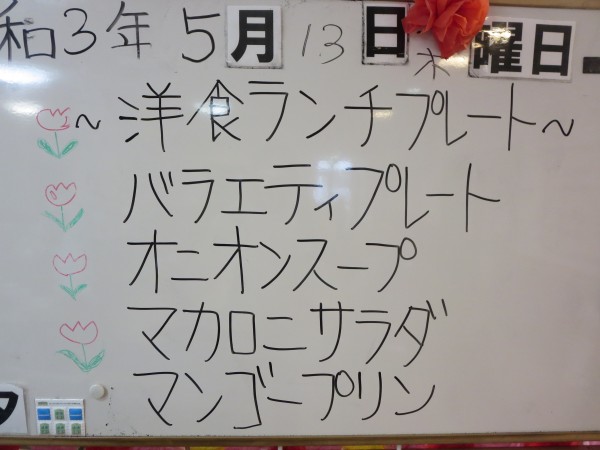 和3年 5月 13日 木 曜日
～洋食ランチプレート～
バラエティプレート
オニオンスープ
マカロニサラダ
マンゴープリン